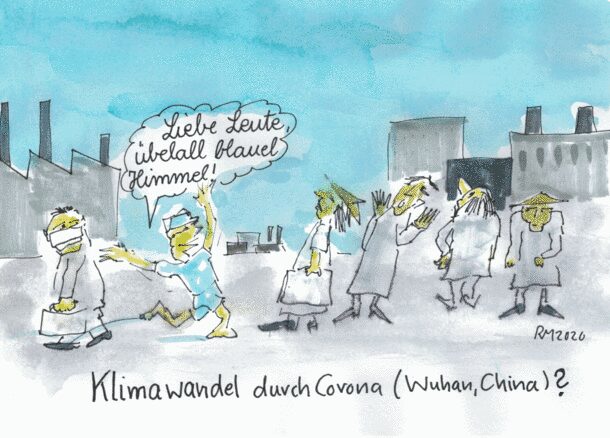 Liebe Leute,
übelall blauel
Himmel!
RM2020
Klimawandel durch Corona (Wuhan, China)?